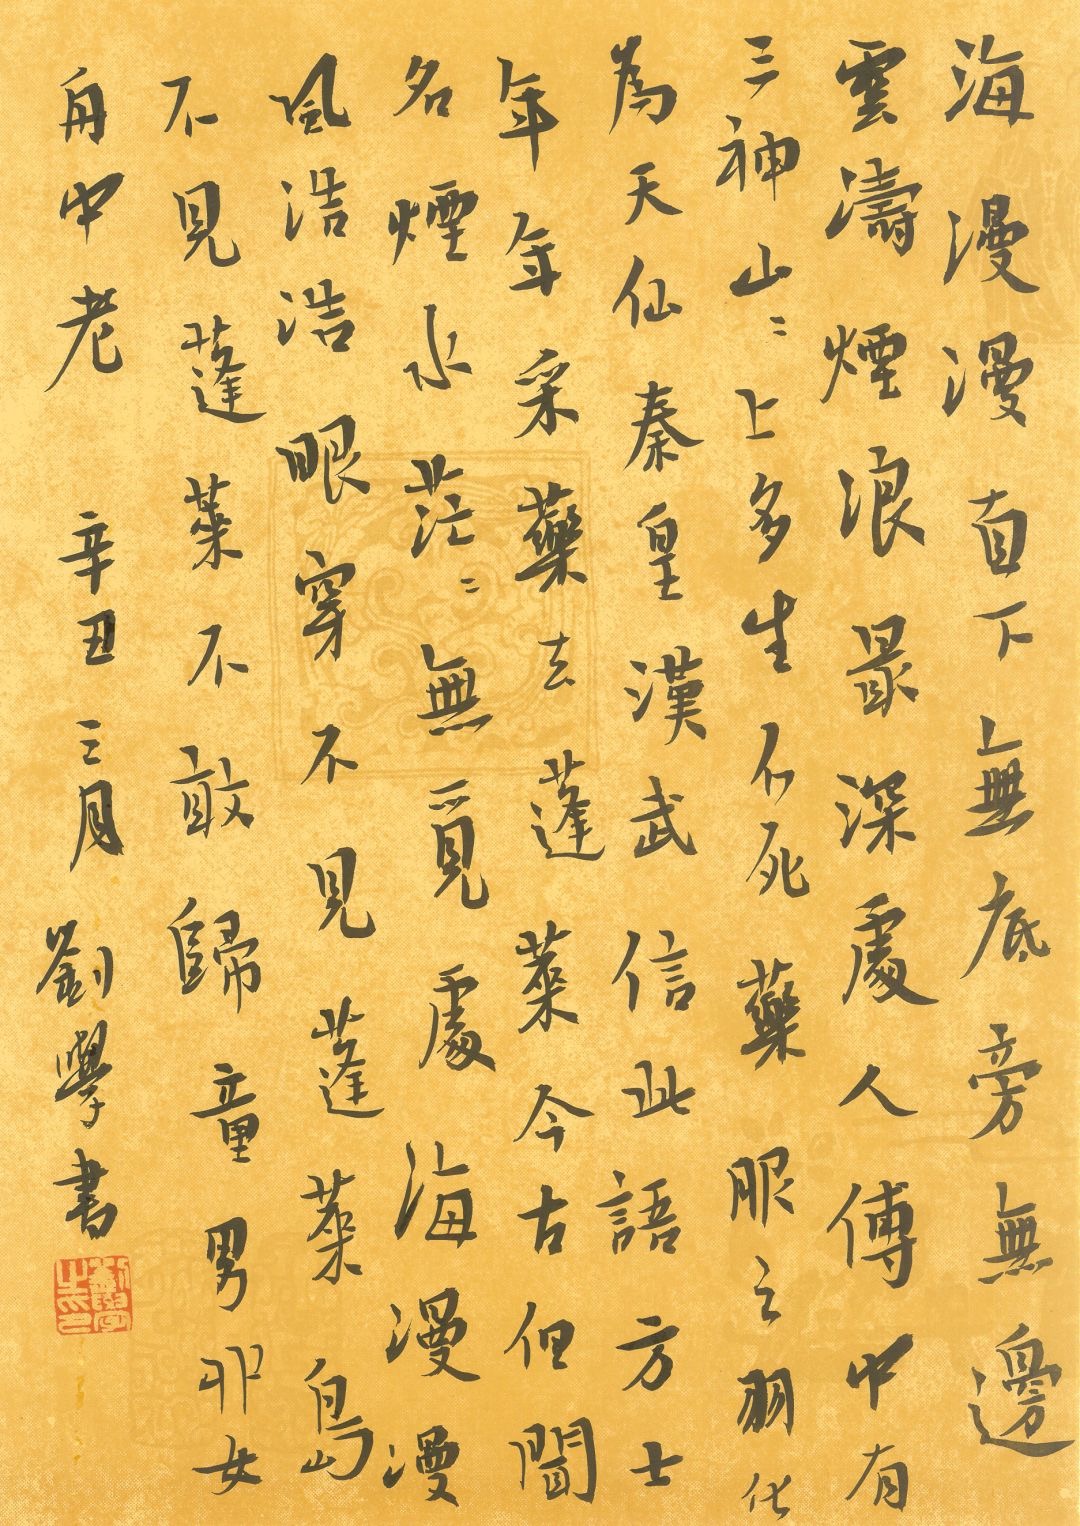 海漫漫直下無底旁無邊
雲濤煙浪最深處人傅中有
三神山〻上多生不死藥服之羽化
為天仙秦皇漢武信此語方士
年年采藥去蓬萊今古但聞
名煙水茫〻無覓處海漫漫
風浩浩眼穿不見蓬萊島
不見蓬萊不敢歸童男丱女
舟中老 辛丑三月劉學書